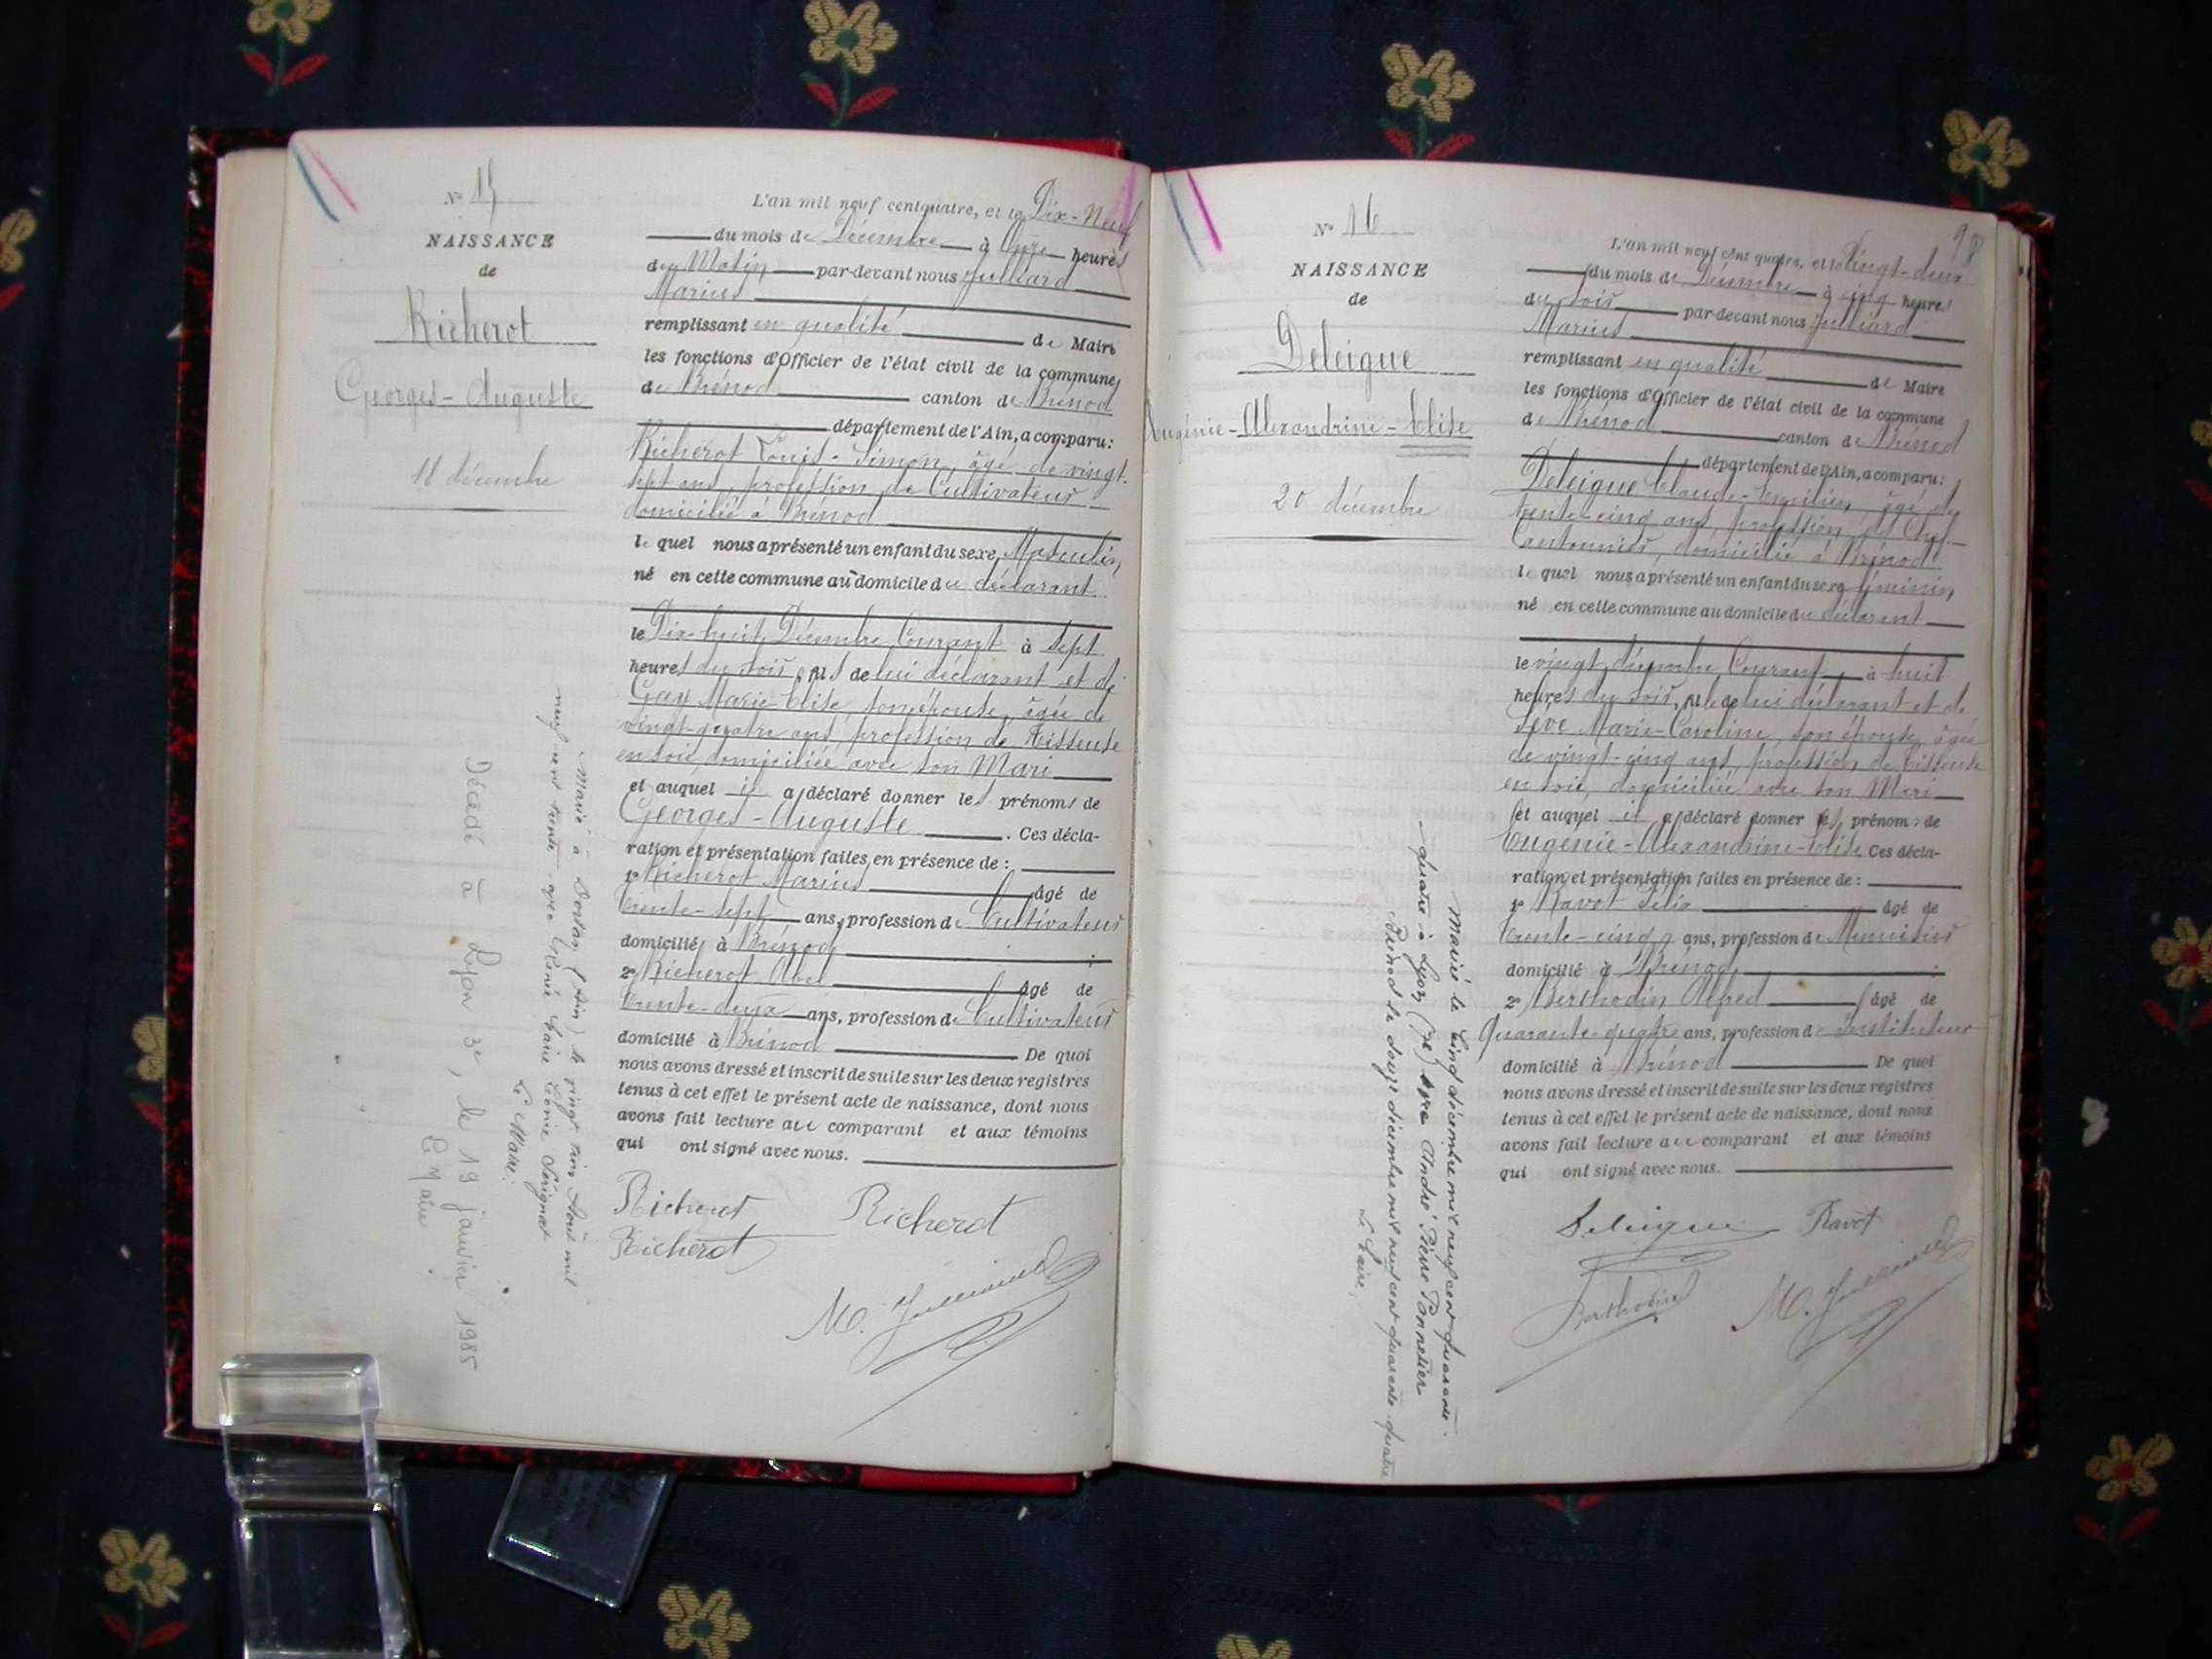 N° 15
NAISSANCE
de
Richerot
Georges-Auguste
18 décembre
L'an mil neuf cent quatre, et le Dix-Neuf
du mois de Décembre à Onze heures
du Matin par-devant nous Julliard
Marius
remplissant en qualité de Maire
les fonctions d'Officier de l'état civil de la commune
de Brénod canton de Brénod
département de l'Ain, a comparu:
Richerot Louis-Simon, âgé de vingt-
sept ans, profession de Cultivateur
domicilié à Brénod
le quel nous a présenté un enfant du sexe Masculin
né en cette commune au domicile du déclarant
le Dix-huit Décembre Courant à sept
heures du soir, fils de lui déclarant et de
Gay Marie Elise, son épouse, âgée de
vingt-quatre ans, profession de Tisseuse
en soie, domiciliée avec son Mari
et auquel il a déclaré donner les prénoms de
Georges-Auguste. Ces décla-
ration et présentation failes, en présence de :
1° Richerot Marius âgé de
trente-sept ans, profession de Cultivateur
domicilié à Brénod ;
2° Richerot Abel âgé de
trente-deux ans, profession de Cultivateur
domicilié à Brénod De quoi
nous avons dressé et inscrit de suite sur les deux registres
tenus à cet effet le présent acte de naissance, dont nous
avons fait lecture au comparant et aux témoins
qui ont signé avec nous.
Richerot Richerot
Richerot
M. Julliard
Marié à (Ain) le vingt Août mil
neuf cent trente avec Renée Marie
Le Maire.
Décédé à Lyon 3e, le 19 janvier 1985
Le Maire.
98
N° 16
NAISSANCE
de
Deleigue
Eugénie-Alexandrine-Elise
20 décembre
L'an mil neuf cent quatre, et le Vingt-deux
du mois de Décembre à cinq heures
du soir par-devant nous Julliard
Marius
remplissant en qualité de Maire
les fonctions d'Officier de l'état civil de la commune
de Brénod canton de Brénod
département de l'Ain, a comparu:
Deleigue Claude-Emilien, âgé de
trente-cinq ans, profession de Chef-
Cantonnier, domicilié à Brénod
le quel nous a présenté un enfant du sexe féminin
né en cette commune au domicile du déclarant
le vingt décembre Courant à huit
heures du soir, fille de lui déclarant et de
Sève Marie-Caroline, son épouse, âgée
de vingt-cinq ans, profession de Tisseuse
en soie, domiciliée avec son Mari
et auquel il a déclaré donner les prénoms de
Eugénie-Alexandrine-Elise. Ces décla-
ration et présentation failes en présence de :
1° Ravot Félix âgé de
trente-cinq ans, profession de Menuisier
domicilié à Brénod ;
2° Berthodin Alfred âgé de
Quarante-quatre ans, profession d'Instituteur
domicilié à Brénod De quoi
nous avons dressé et inscrit de suite sur les deux registres
tenus à cet effet le présent acte de naissance, dont nous
avons fait lecture au comparant et aux témoins
qui ont signé avec nous.
Deleigue Ravot
Berthodin M. Julliard
Mariée le Cinq décembre mil neuf cent quarante-
-quatre à Lyon (7e) avec André Pierre Pannetier
Brénod le douze décembre mil neuf cent quarante quatre
Le Maire,